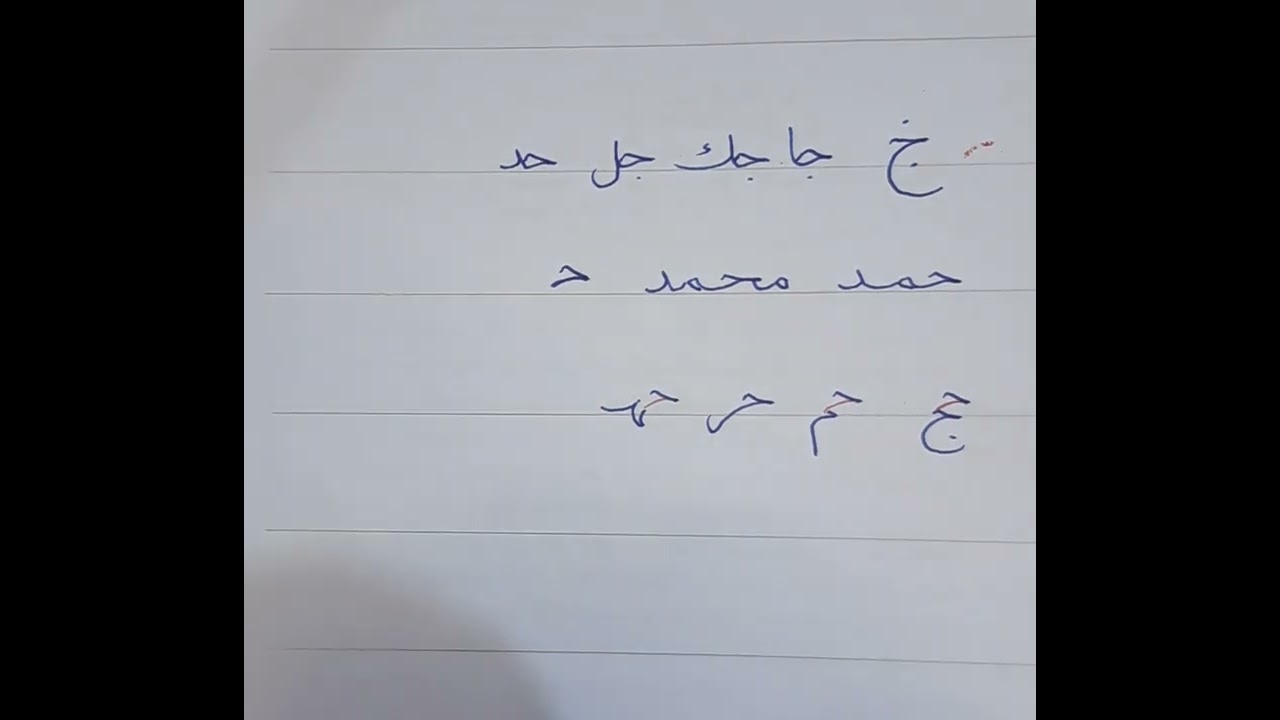 خ جا جك جل حد
حمد محمد حـ
حج حم حر حهد